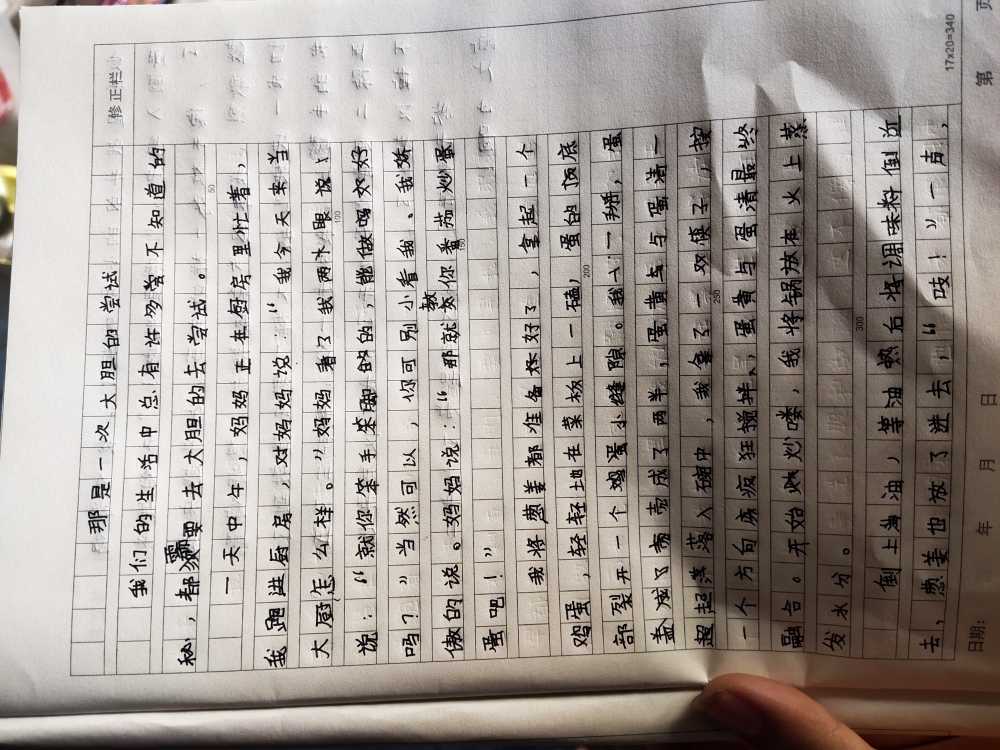 修正栏
那是一次大胆的尝试
我们的生活中总有许多尝不知道的
秘,都需要去大胆的去尝试。
50
一天中午,妈妈正在厨房里忙着,
我跑进厨房,对妈妈说:“我今天来当
大厨怎么样。”妈妈看了我两个眼说:
100
说:“就你笨手笨脚的的,能做吗好好
吗?”当然可以,你可别小看我。我骄
傲的说。妈妈说:“那就教你番茄炒蛋
150
蛋吧!”
我将葱姜都准备好了,拿起一个
鸡蛋,轻轻地在菜板上一磕,蛋的顶底
200
部裂开一个鸡蛋小缝隙。我一掰,蛋
壳成了两半,蛋黄与蛋清一
起落入碗中,我拿了一双筷子,按
250
一个方向疯狂搅拌,蛋黄与蛋清最终
融合。开始炒喽,我将锅放在火上蒸
发水分。
300
倒上油,等油热后将调味料倒近
去,葱姜也放了进去,“吱!”一声,
17x20=340
日期: 年 月 日 第 页